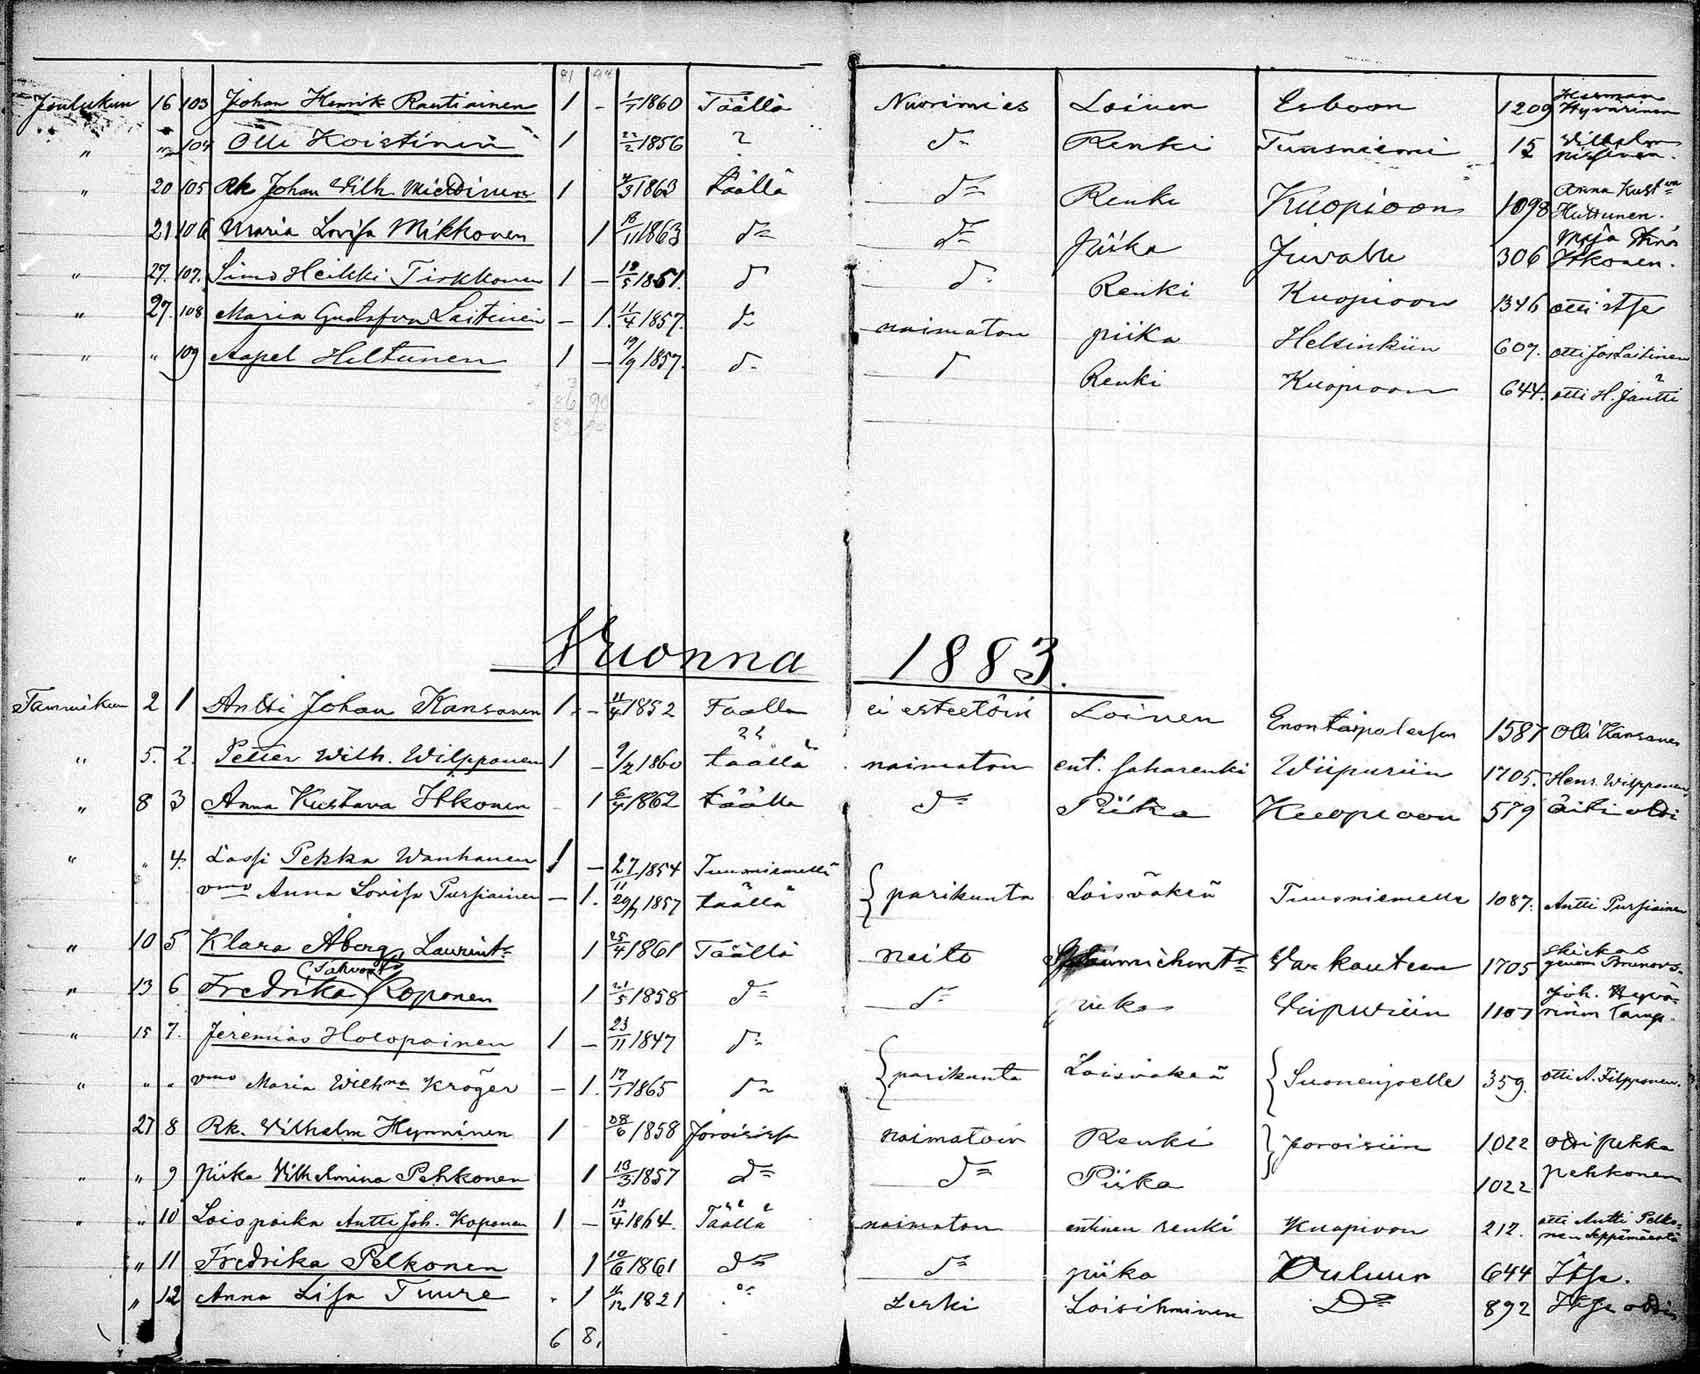 81 98
Joulukun 16 103 Johan Henrik Rautiainen 1 - 1/1 1860 Täällä Nuorimies Loinen Esboon 1209 Herman Hyvärinen
" " 104 Olli Koistinen 1 22/2 1856 2 d:o Renki Tuusniemi 15 Vilhelm
" 20 105 Rk Johan Vilh. 1 3 1863 täällä d:o Renki Kuopioon 1098 Anna Kust:va Huttunen.
21 106 Maria Lovisa Mikkonen 1 18/11 1863 d:o d:o Piika Juvalle 306 Maja Itkonen.
" 27. 107. Simo Heikki Tirkkonen 1 - 18/5 1861. d:o d:o Renki Kuopioon 1346 otti itse
" 27. 108 Maria Gustafva Laitinen - 1. 11/4 1857. d:o naimaton piika Helsinkiin 607. otti Jos. Laitinen
" " 109 Aapel Hiltunen 1 - 19/9 1857. d:o d:o Renki Kuopioon 644. otti H. Jäntti
Vuonna 1883.
Tammikun 2 1 Antti Johan Kansanen 1 - 11/4 1852 Täällä ei esteetöin Loinen Enontaipaleesen 1587 Olli Kansanen
" 5. 2. Petter Wilh. Wilpponen 1 - 9/2 1860 täällä naimaton ent. saharenki Wiipuriin 1705. Henr. Wilpponen
" 8 3 Anna Kustava Itkonen - 1 1862 täällä d:o Piika Kuopioon 579 äiti otti
" " 4. Lassi Pekka Wanhanen 1 - 27/11 1854 Tuusniemellä
vmo Anna Lovisa Pursiainen - 1. 29/ 1857 täällä } parikunta Loisväkeä Tuusniemelle 1087. Antti Pursiainen
" 10 5 Klara Åberg Laurint:r 1 25/4 1861 Täällä neito Varkauteen 1705 skickas genom Brunovs.
" 13 6 Fredrika (Sahvont:r) Koponen 1 21/5 1858 d:o d:o piika Viipuriin 1107 Joh. Hyvärinen
" 15 7. Jeremias Holopainen 1 - 23/11 1847 d:o
" " " vmo Maria Wilh:na Kröger - 1. 17/1 1865 d:o { parikunta Loisväkeä { Suonenjoelle 359. otti A. Filpponen.
27 8 Rk. Vilhelm Hynninen 1 28/6 1858 Joroisissa naimatoin Renki } Joroisiin 1022 otti Pekka
" " 9 Piika Vilhelmina Pehkonen 1 13/3 1857 d:o d:o Piika 1022 Pehkonen
" " 10 Lois poika Antti Joh. Koponen 1 - 13/4 1864. Täällä naimaton entinen renki Kuopioon 212. otti Antti Pelkonen Seppämäestä
" 11 Fredrika Pelkonen 1 10/6 1861 d:o d:o piika Ouluun 644 Itse.
" 12 Anna Lisa Tuure - 1 /12 1821 d:o Leski Loisihminen D:o 892 Itse otti
6 8.